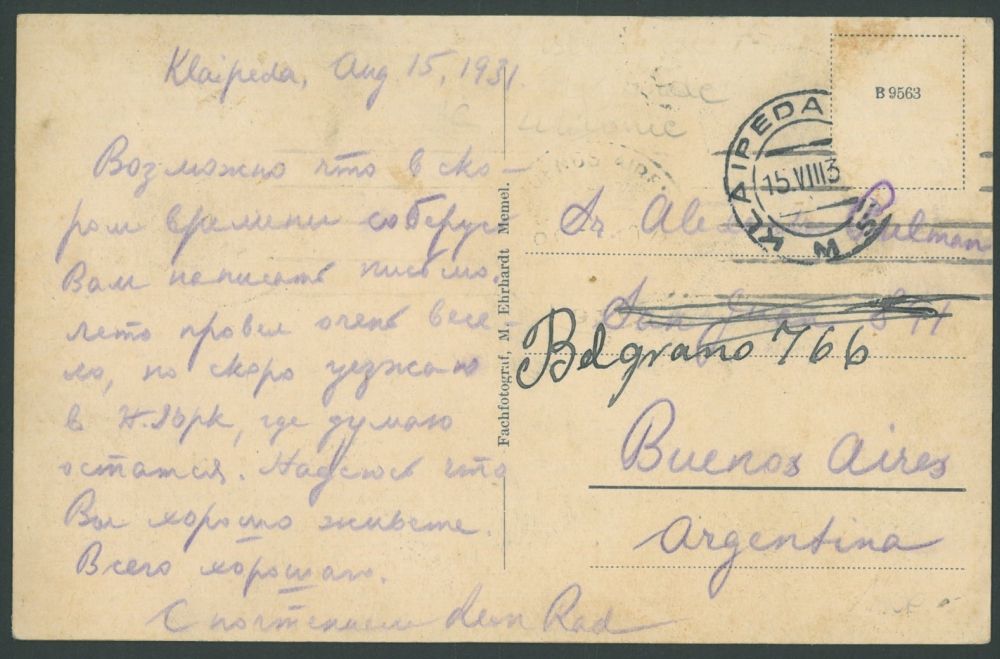 Klaipeda, Aug 15, 1931.
Возможно что в ско-
ром времени соберусь
Вам написать письмо.
Лето провел очень весе-
ло, но скоро уезжаю
в Н.Иорк, где думаю
остатся. Надеюсь что
Вы хорошо живете.
Всего хорошаго.
С почтением
Rad
Fachfotograf, M. Ehrhardt Memel.
B 9563
KLAIPEDA
15.VIII3
M
Sr.
San Juan
Belgrano 766
Buenos Aires
Argentina